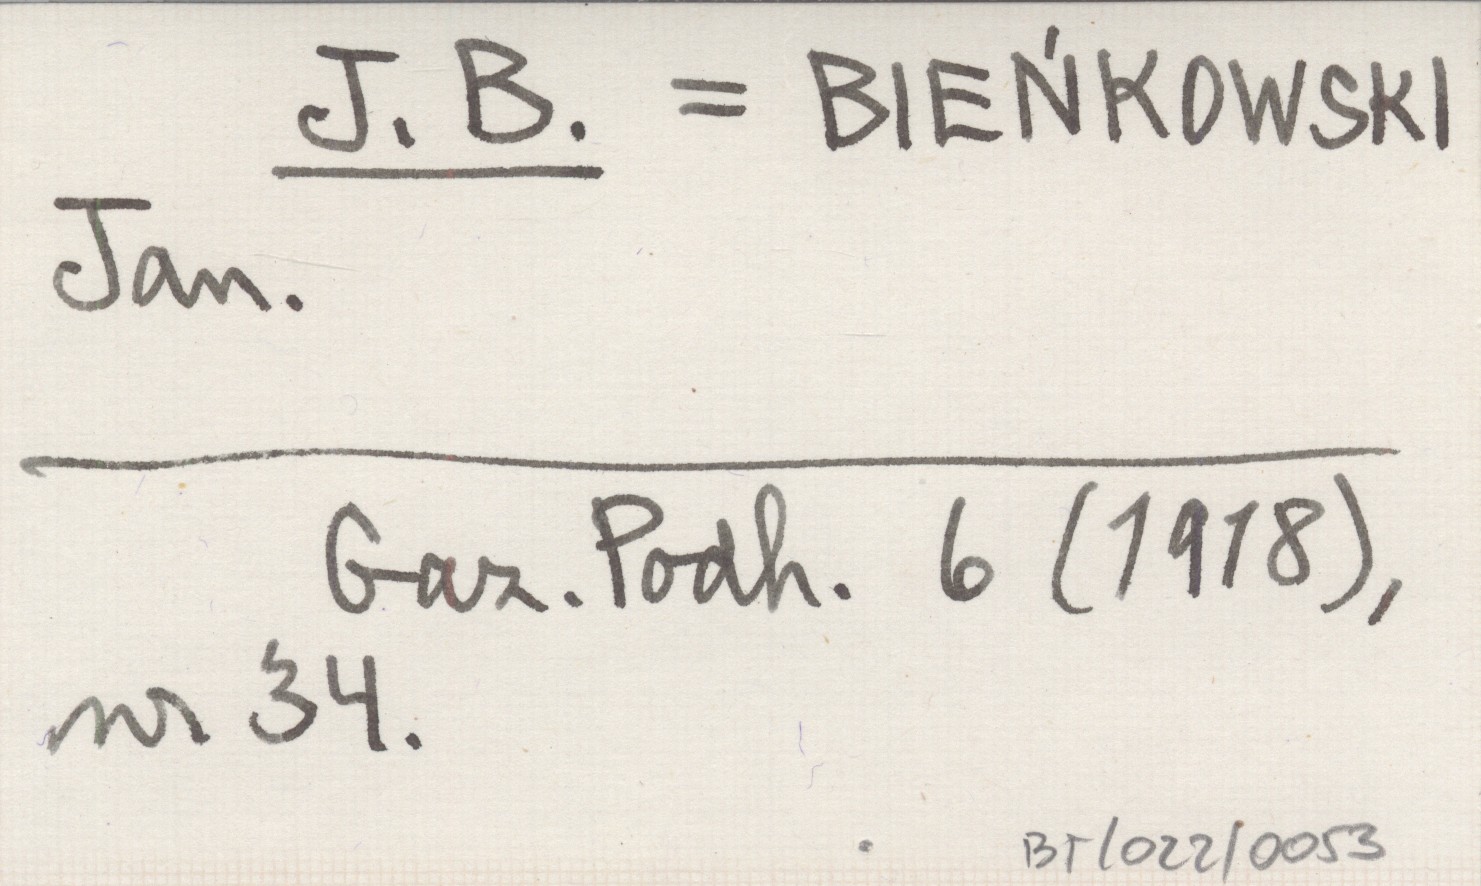 J. B. = BIEŃKOWSKI
Jan.
Gaz. Podh. 6 (1918),
nr 34.
BT/022/0053